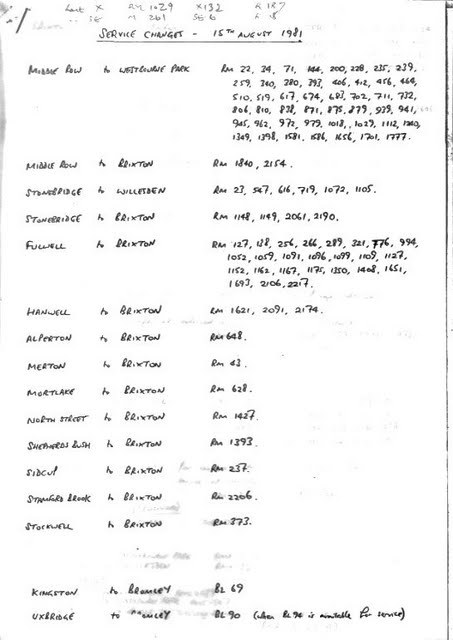 X RM 1029 X132 R 187
SE M 261 SE 6 R 18
SERVICE CHANGES - 15TH AUGUST 1981
MIDDLE ROW to WESTBOURNE PARK RM 22, 34, 71, 144, 200, 228, 235, 239,
259, 340, 380, 393, 406, 412, 456, 464,
510, 519, 617, 674, 683, 702, 711, 732,
806, 810, 838, 871, 875, 879, 939, 941,
945, 962, 972, 979, 1018, 1029, 1112, 1240,
1349, 1398, 1581, 1586, 1656, 1701, 1777.
MIDDLE ROW to BRIXTON RM 1840, 2154.
STONEBRIDGE to WILLESDEN RM 23, 547, 616, 719, 1072, 1105.
STONEBRIDGE to BRIXTON RM 1148, 1149, 2061, 2190.
FULWELL to BRIXTON RM 127, 138, 256, 266, 289, 321, 776, 994,
1052, 1059, 1091, 1096, 1099, 1109, 1127,
1152, 1162, 1167, 1175, 1350, 1408, 1651,
1693, 2106, 2217.
HANWELL to BRIXTON RM 1621, 2091, 2174.
ALPERTON to BRIXTON RM 648.
MERTON to BRIXTON RM 43.
MORTLAKE to BRIXTON RM 628.
NORTH STREET to BRIXTON RM 1427.
SHEPHERDS BUSH to BRIXTON RM 1393.
SIDCUP to BRIXTON RM 237.
STAMFORD BROOK to BRIXTON RM 2206.
STOCKWELL to BRIXTON RM 373.
KINGSTON to BROMLEY BL 69
UXBRIDGE to BROMLEY BL 90 (when BL 94 is available for service)